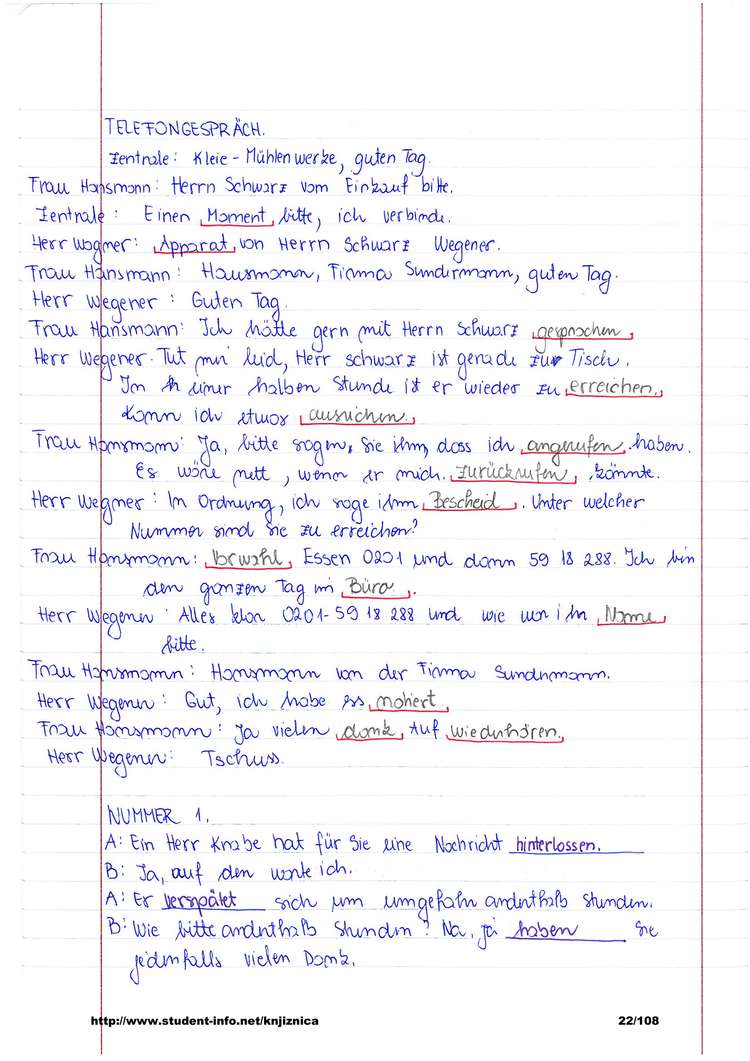 TELEFONGESPRÄCH.
Zentrale: Kleie-Mühlenwerke, guten Tag.
Frau Hansmann: Herrn Schwarz vom Einkauf bitte.
Zentrale: Einen Moment, bitte, ich verbinde.
Herr Wagner: Apparat von Herrn Schwarz Wegener.
Frau Hansmann: Hausmann, Firma Sundermann, guten Tag.
Herr Wegener: Guten Tag.
Frau Hansmann: Ich hätte gern mit Herrn Schwarz gesprochen.
Herr Wegener. Tut mir leid, Herr schwarz ist gerade zur Tisch.
In einer halben Stunde ist er wieder zu erreichen.
Kann ich etwas ausrichen.
Frau Hansmann: Ja, bitte sagen, Sie ihm, dass ich angerufen haben.
Es wäre nett, wenn er mich. zurückrufen, könnte.
Herr Wegner: In Ordnung, ich sage ihm Bescheid. Unter welcher
Nummer sind Sie zu erreichen?
Frau Hansmann: Vorwahl, Essen 0201 und dann 59 18 288. Ich bin
den ganzen Tag im Büro.
Herr Wegener: Alles klar 0201-59 18 288 und wie war ihr Name,
bitte.
Frau Hansmann: Hansmann von der Firma Sundermann.
Herr Wegener: Gut, ich habe es notiert,
Frau Hansmann: Ja vielen dank, Auf wiederhören,
Herr Wegener: Tschuss.
NUMMER 1.
A: Ein Herr Knabe hat für Sie eine Nachricht hinterlassen.
B: Ja, auf den warte ich.
A: Er verspätet sich um umgefahr anderthalb stunden.
B: Wie bitte anderthalb stunden? Na, ja haben Sie
jedenfalls vielen Dank.
http://www.student-info.net/knjiznica
22/108